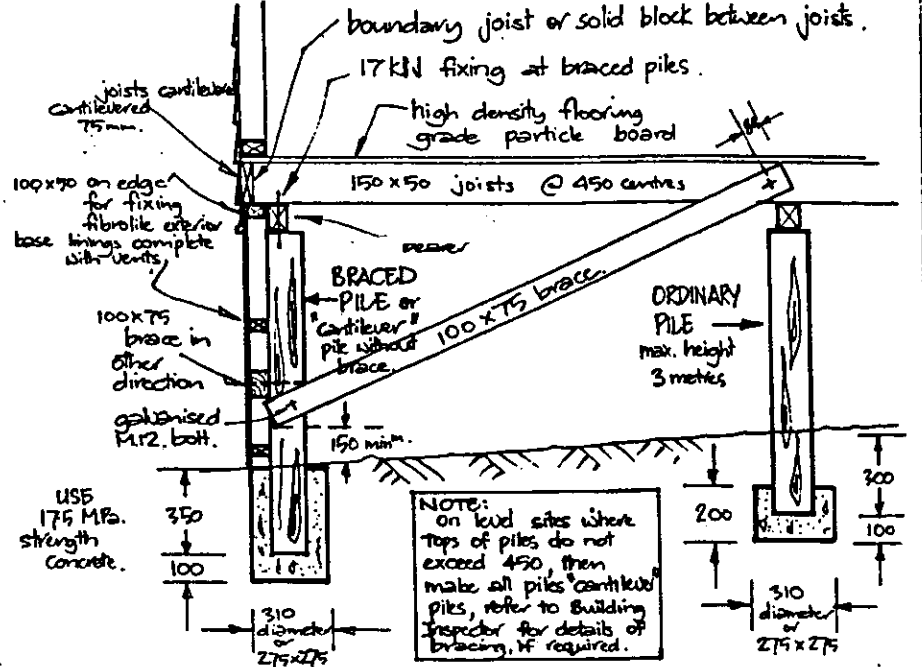 boundary joist or solid block between joists.
17kN fixing at braced piles.
joists cantilevered
cantilevered
75mm.
high density flooring
grade particle board
100x50 on edge
for fixing
fibrolite exterior
base linings complete
with vents
150x50 joists @ 450 centres
bearer
BRACED
PILE or
"cantilever"
pile without
brace.
100x75 brace.
ORDINARY
PILE
max. height
3 metres
100x75
brace in
other
direction
galvanised
M12. bolt.
150 minm.
USE
175 MPa.
strength
Concrete.
350
100
310
diameter
or
275x275
NOTE:
on level sites where
tops of piles do not
exceed 450, then
make all piles "cantilever"
piles, refer to Building
Inspector for details of
bracing, if required.
200
300
100
310
diameter
or
275x275